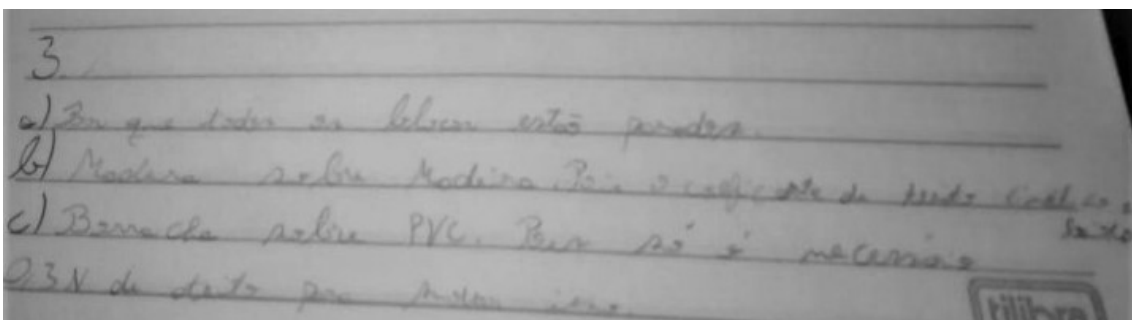 3.
a) Por que todos os blocos estão parados.
b) Madeira sobre Madeira. Pois o coeficiente de
c) Borracha sobre PVC. Pois só é necessário
0,3 N de
tilibra